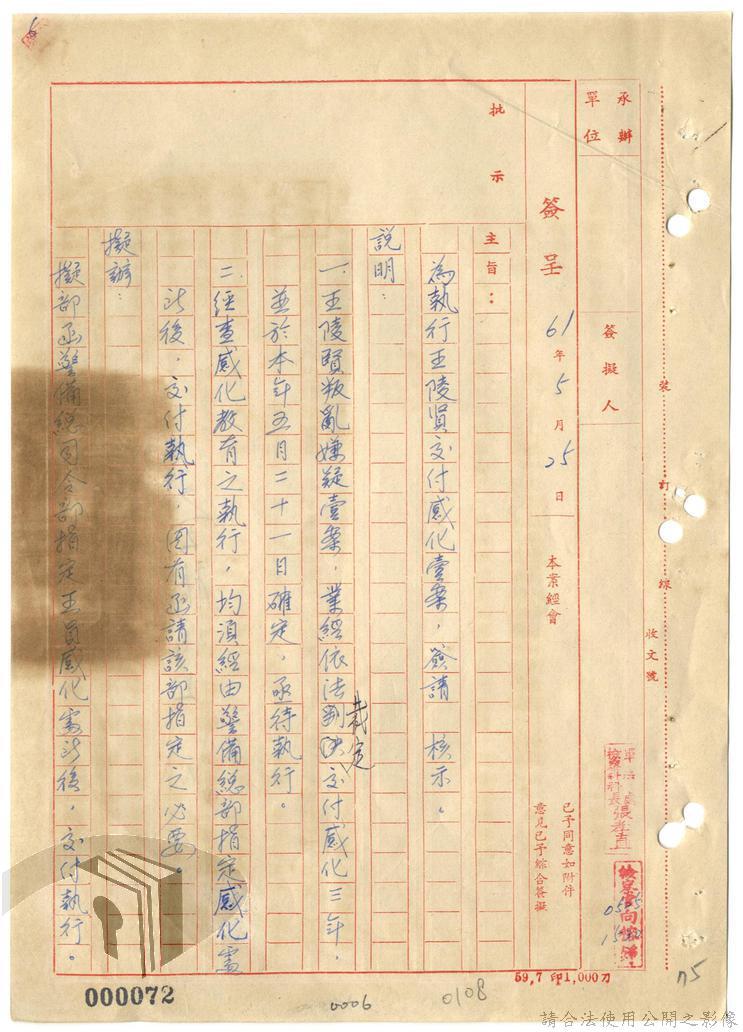 收文號
裝訂線
承辦單位
簽擬人
軍法處
檢察科科長張孝直
0525
簽呈 61年5月25日
本案經會
已予同意如附件
意見已予綜合簽擬
批示
主旨：
為執行王陵賢交付感化壹案，簽請 核示。
說明：
一、王陵賢叛亂嫌疑壹案，業經依法判決交付感化三年，
裁定
並於本年五月二十一日確定，亟待執行。
二、經查感化教育之執行，均須經由警備總部指定感化處
所後，交付執行，因有函請該部指定之必要。
擬辦：
擬部函警備總司令部指定王員感化處所後，交付執行。
59,7 印1,000刀
000072
0006
0108
75
請合法使用公開之影像